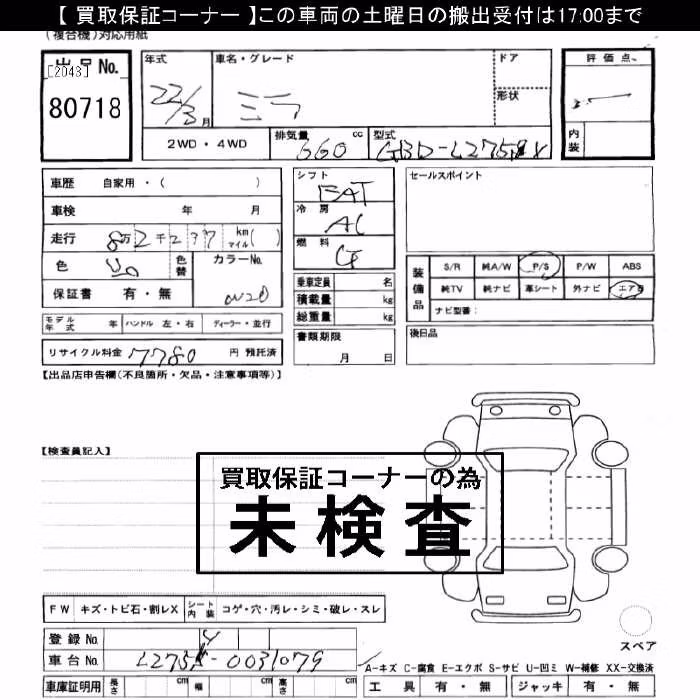 【 買取保証コーナー 】この車両の土曜日の搬出受付は17:00まで
(複合機)対応用紙
出品No.
[2043]
80718
年式
22/3月
車名・グレード
ミラ
ドア
形状
評価点
内装
2WD・4WD
排気量 660 cc
型式
車歴 自家用・( )
車検 年 月
走行 8万2千277 km マイル( )
色
色替
カラーNo.
W20
保証書 有・無
モデル年式 年 ハンドル 左・右 ディーラー・並行
リサイクル料金 7780 円 預託済
シフト
FAT
冷房
AC
燃料
G
乗車定員 名
積載量 kg
総重量 kg
書類期限
月 日
セールスポイント
装備品
S/R 純A/W P/S P/W ABS
純TV 純ナビ 革シート 外ナビ エアB
ナビ型番:
後日品
【出品店申告欄(不良箇所・欠品・注意事項等)】
【検査員記入】
買取保証コーナーの為
未検査
FW キズ・トビ石・割レX シート内装 コゲ・穴・汚レ・シミ・破レ・スレ
登録No.
車台No. -0031079
スペア
A-キズ C-腐食 E-エクボ S-サビ U-凹ミ W-補修 XX-交換済
車庫証明用 長さ cm 幅 cm 高さ cm
工具 有・無 ジャッキ 有・無